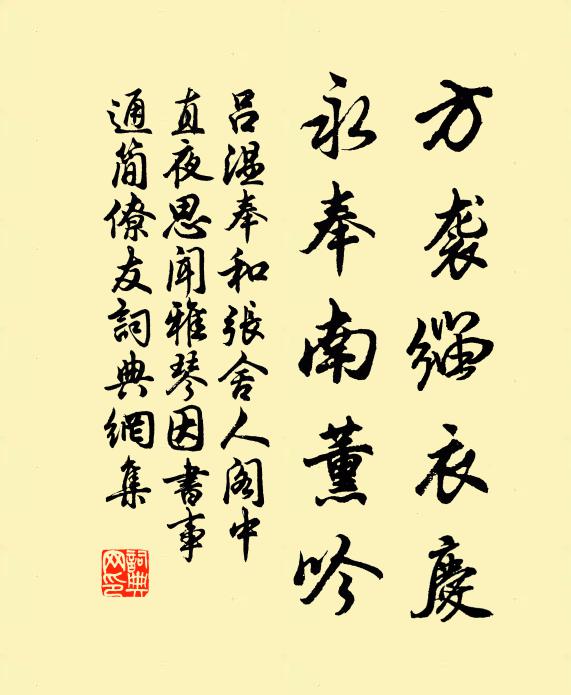 方袭缁衣慶
永奉南薰吟
吕温奉和張舍人阁中
直夜思闻雅琴因書事
通简僚友詞典網集
詞典网印